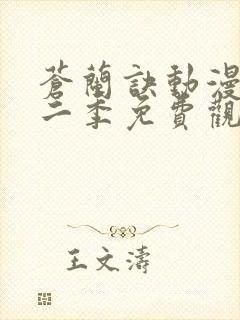 蒼蘭訣動漫
二季免費觀
王文濤